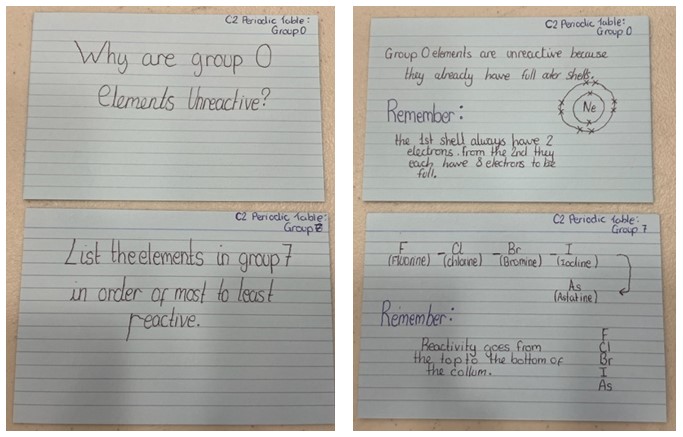 C2 Periodic Table:
Group 0
Why are group 0
elements Unreactive?
C2 Periodic Table:
Group 0
Group 0 elements are unreactive because
they already have full outer shells.
Ne
Remember:
the 1st shell always have 2
electrons. From the 2nd they
each have 8 electrons to be
full.
C2 Periodic Table:
Group
List the elements in group 7
in order of most to least
reactive.
C2 Periodic Table:
Group 7
F - Cl - Br - I
(Fluorine) (chlorine) (Bromine) (Iodine)
As
(Astatine)
Remember:
Reactivity goes from
the top to the bottom of
the collum.
F
Cl
Br
I
As